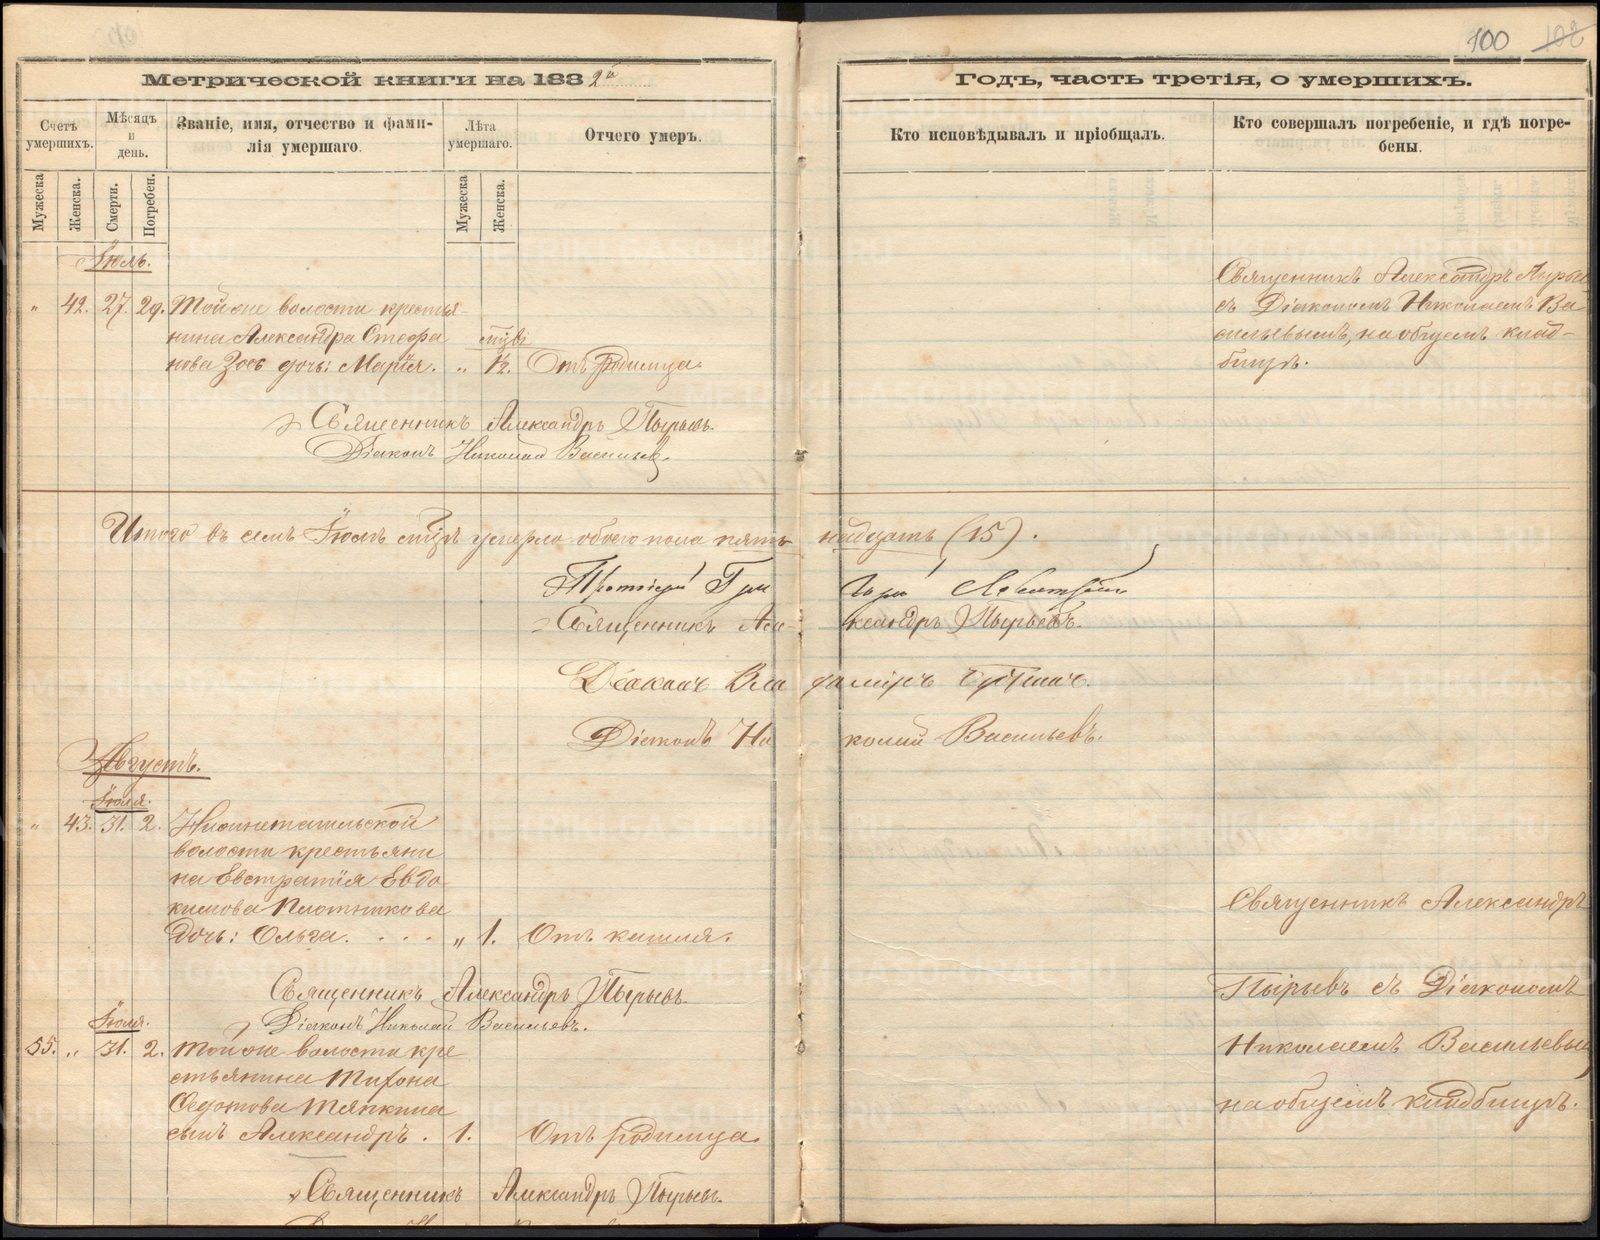 100 102
Метрической книги на 1882й
Годъ, часть третія, о умершихъ.
Счетъ умершихъ.
Мѣсяцъ и день.
Званіе, имя, отчество и фами-
лія умершаго.
Лѣта умершаго.
Отчего умеръ.
Кто исповѣдывалъ и пріобщалъ.
Кто совершалъ погребеніе, и гдѣ погре-
бены.
Мужеска
Женска.
Смерти.
Погребен.
Мужеска
Женска.
Іюль.
" 42. 27. 29. Той же волости крестья-
нина Александра Стефа
нова дочь: Марія. " ½. Отъ родимца.
Священникъ Александръ Пырьев
съ Діакономъ Николаемъ Ва
сильевымъ, на общемъ клад-
бищѣ.
Священникъ Александръ Пырьевъ.
Діаконъ Николай Васильевъ.
Итого въ семъ Іюлѣ мцѣ умерло обоего пола пятьнадцать (15).
Протоіерей
Священникъ Александръ Пырьевъ.
Діаконъ Владиміръ
Діаконъ Николай Васильевъ.
Августъ.
Іюля.
" 43. 31. 2. Нижнетагильской
волости крестьяни
на Евстратія Евдо
кимова Плотникова
дочь: Ольга. . . . " 1. Отъ кашля.
Священникъ Александръ
Пырьевъ съ Діакономъ
Николаемъ Васильевымъ
на общемъ кладбищѣ.
Священникъ Александръ Пырьевъ.
Діаконъ Николай Васильевъ.
Іюля.
55. " 31. 2. Той же волости кре
стьянина Тифона
Федотова Тяпкина
сынъ Александръ. 1. Отъ родимца.
Священникъ Александръ Пырьевъ.